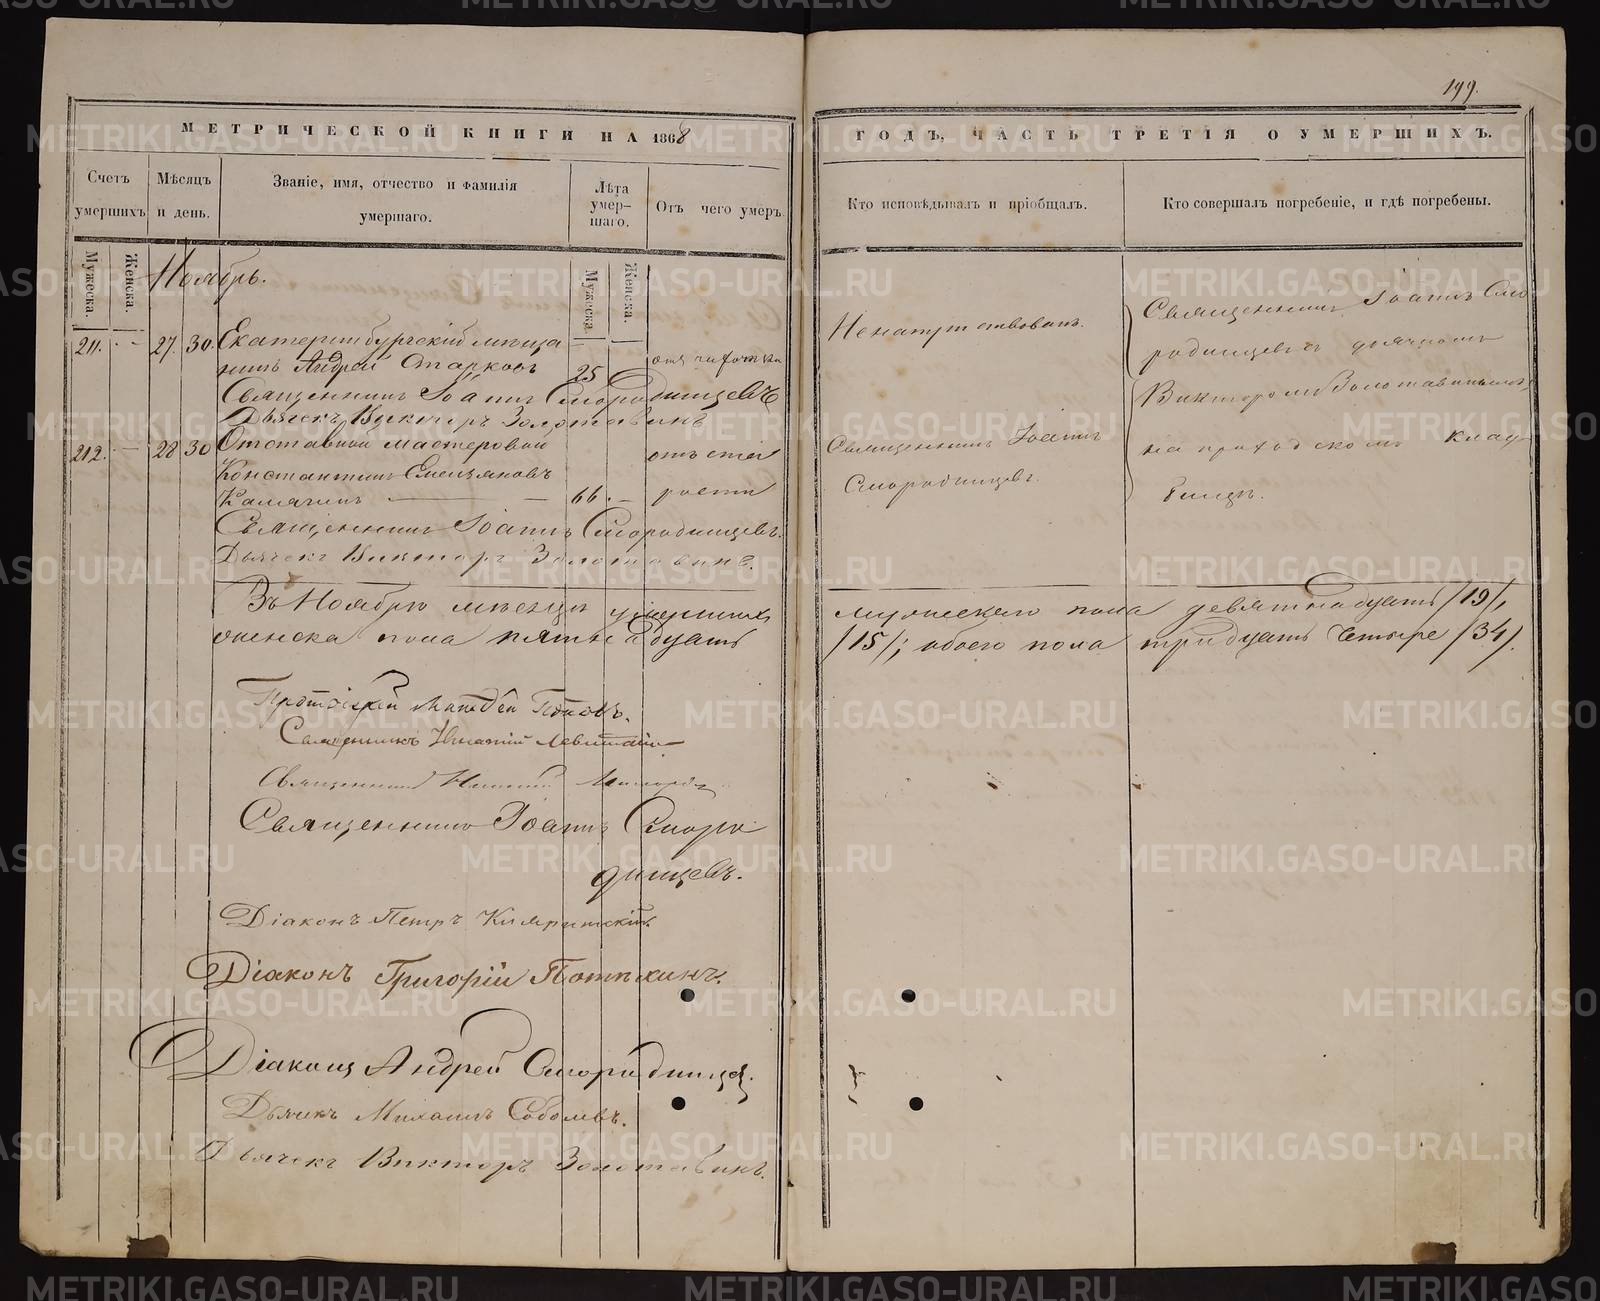 199.
МЕТРИЧЕСКОЙ КНИГИ НА 1868
ГОДЪ, ЧАСТЬ ТРЕТІЯ О УМЕРШИХЪ.
Счетъ умершихъ
Мѣсяцъ и день.
Званіе, имя, отчество и фамилія умершаго.
Лѣта умер-
шаго.
Отъ чего умеръ.
Кто исповѣдывалъ и пріобщалъ.
Кто совершалъ погребеніе, и гдѣ погребены.
Мужеска.
Женска.
Мужеска.
Женска.
Ноябрь.
211. - 27. 30. Екатеринбургскій мѣща
нинъ Андрей Старковъ 25 отъ чахотки
Священникъ Іоаннъ Смородинцевъ
Дьячекъ Викторъ Золотавинъ
212. - 28 30 Отставной мастеровой отъ ста
Константинъ Емельяновъ
66. - рости
Священникъ Іоаннъ Смородинцевъ.
Дьячекъ Викторъ Золотавинъ.
Не напутствованъ.
Священникъ Іоаннъ
Смородинцевъ.
Священникъ Іоаннъ Смо
родинцевъ съ дьячкомъ
Викторомъ Золотавинымъ,
на приходскомъ клад-
бищѣ.
Въ Ноябрѣ мѣсяцѣ умершихъ мужескаго пола девятнадцать /19/,
женска пола пятнадцать /15/; обоего пола тридцать четыре /34/.
Протоіерей Поповъ.
Священникъ Левитскій
Священникъ
Священникъ Іоаннъ Сморо
динцевъ.
Діаконъ Петръ
Діаконъ Григорій Потѣхинъ.
Діаконъ Андрей Смородинцевъ.
Дьячекъ Михаилъ Соболевъ.
Дьячекъ Викторъ Золотавинъ.
METRIKI.GASO-URAL.RU